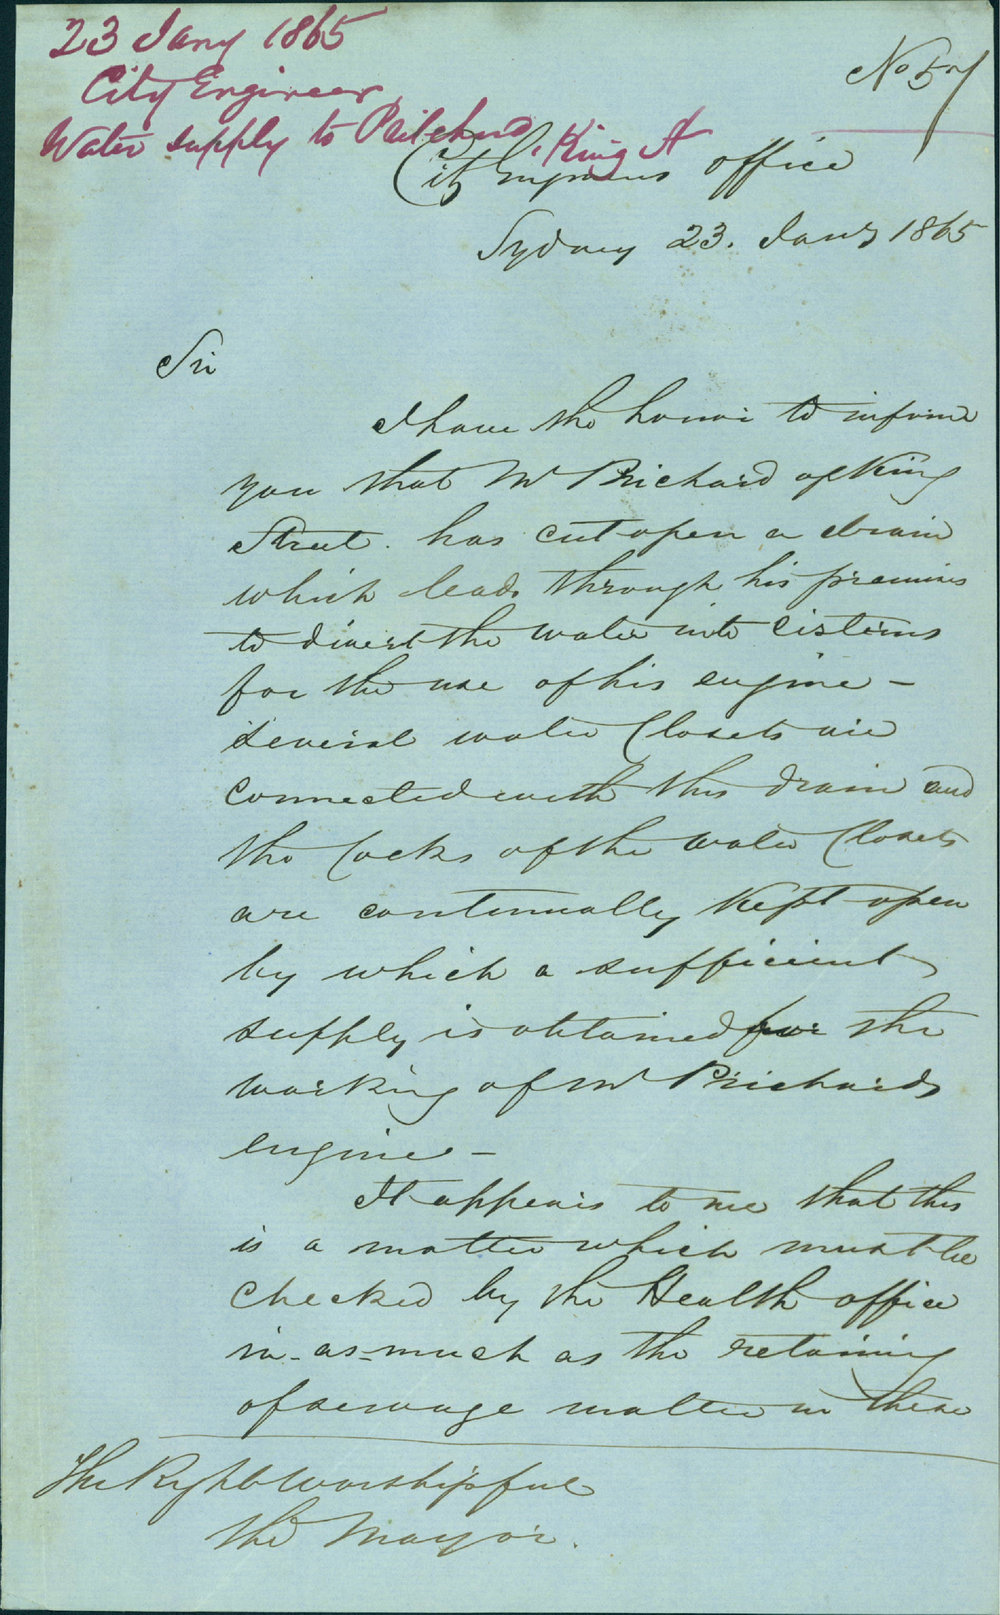 23 Jany 1865
City Engineer
Water supply to Pritchard, King St
No 57
City Engineers office
Sydney 23. Jany 1865
Sir
I have the honor to inform
you that Mr Prichard of King
Street. has cut open a drain
which leads through his premises
to divert the water into cisterns
for the use of his engine –
Several water Closets are
connected with this drain and
the Cocks of the water Closets
are continually kept open
by which a sufficient
supply is obtained for the
working of Mr Prichards
engine –
It appears to me that this
is a matter which must be
checked by the Health office
in-as-much as the retaining
of sewage matter in these
The Right Worshipful
the Mayor.